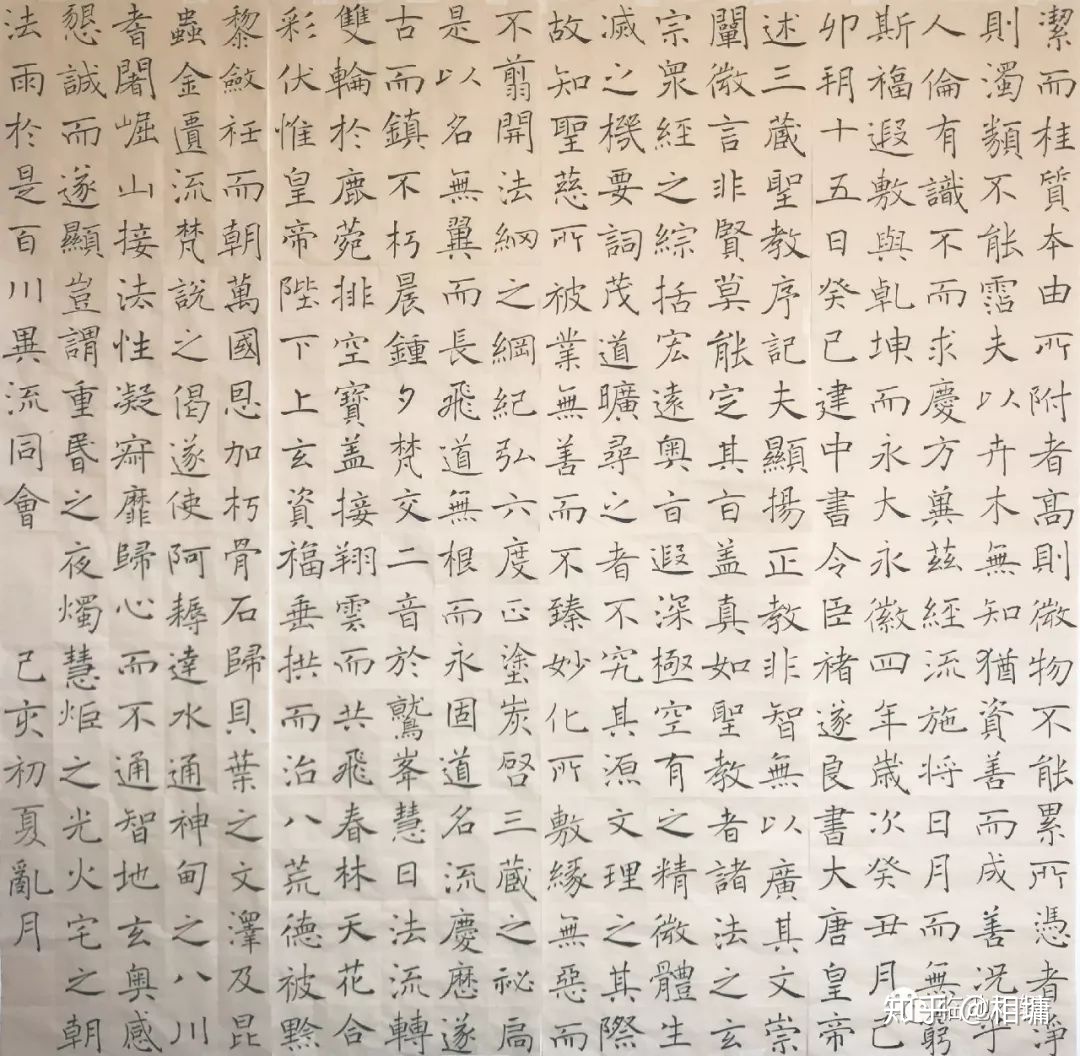 潔而桂質本由所附者高則微物不能累所憑者淨
則濁類不能霑夫以卉木無知猶資善而成善況乎
人倫有識不而求慶方冀茲經流施将日月而無窮
斯福遐敷與乹坤而永大永徽四年歲次癸丑月己
卯朔十五日癸巳建中書令臣褚遂良書大唐皇帝
述三藏聖教序記夫顯揚正教非智無以廣其文崇
闡微言非賢莫能定其旨盖真如聖教者諸法之玄
宗衆經之綜括宏遠奥旨遐深極空有之精微體生
滅之機要詞茂道曠尋之者不究其源文理之其際
故知聖慈所被業無善而不臻妙化所敷緣無惡而
不翦開法網之綱紀弘六度正塗炭啓三藏之祕扃
是以名無翼而長飛道無根而永固道名流慶歷遂
古而鎮不朽晨鍾夕梵交二音於鷲峯慧日法流轉
雙輪於鹿菀排空寶盖接翔雲而共飛春林天花合
彩伏惟皇帝陛下上玄資福垂拱而治八荒德被黔
黎斂衽而朝萬國恩加朽骨石歸貝葉之文澤及昆
蟲金匱流梵說之偈遂使阿耨達水通神甸之八川
耆闍崛山接法性凝寂靡歸心而不通智地玄奥感
懇誠而遂顯豈謂重昏之夜燭慧炬之光火宅之朝
法雨於是百川異流同會 己亥初夏亂月
知乎 @相墉